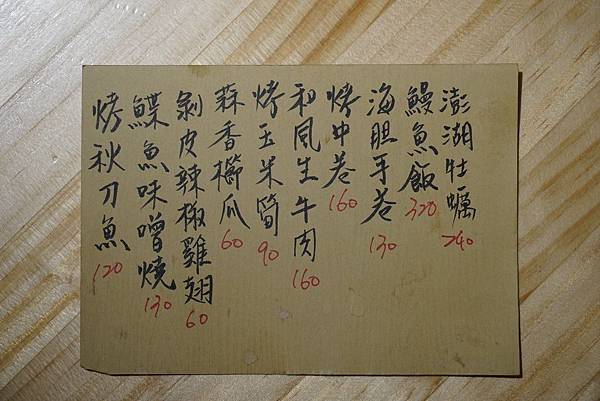 澎湖牡蠣 240
鰻魚飯 320
海胆手卷 130
烤中卷 160
和風生牛肉 160
烤玉米筍 90
蒜香櫛瓜 60
剝皮辣椒雞翅 60
鰈魚味噌燒 130
烤秋刀魚 120